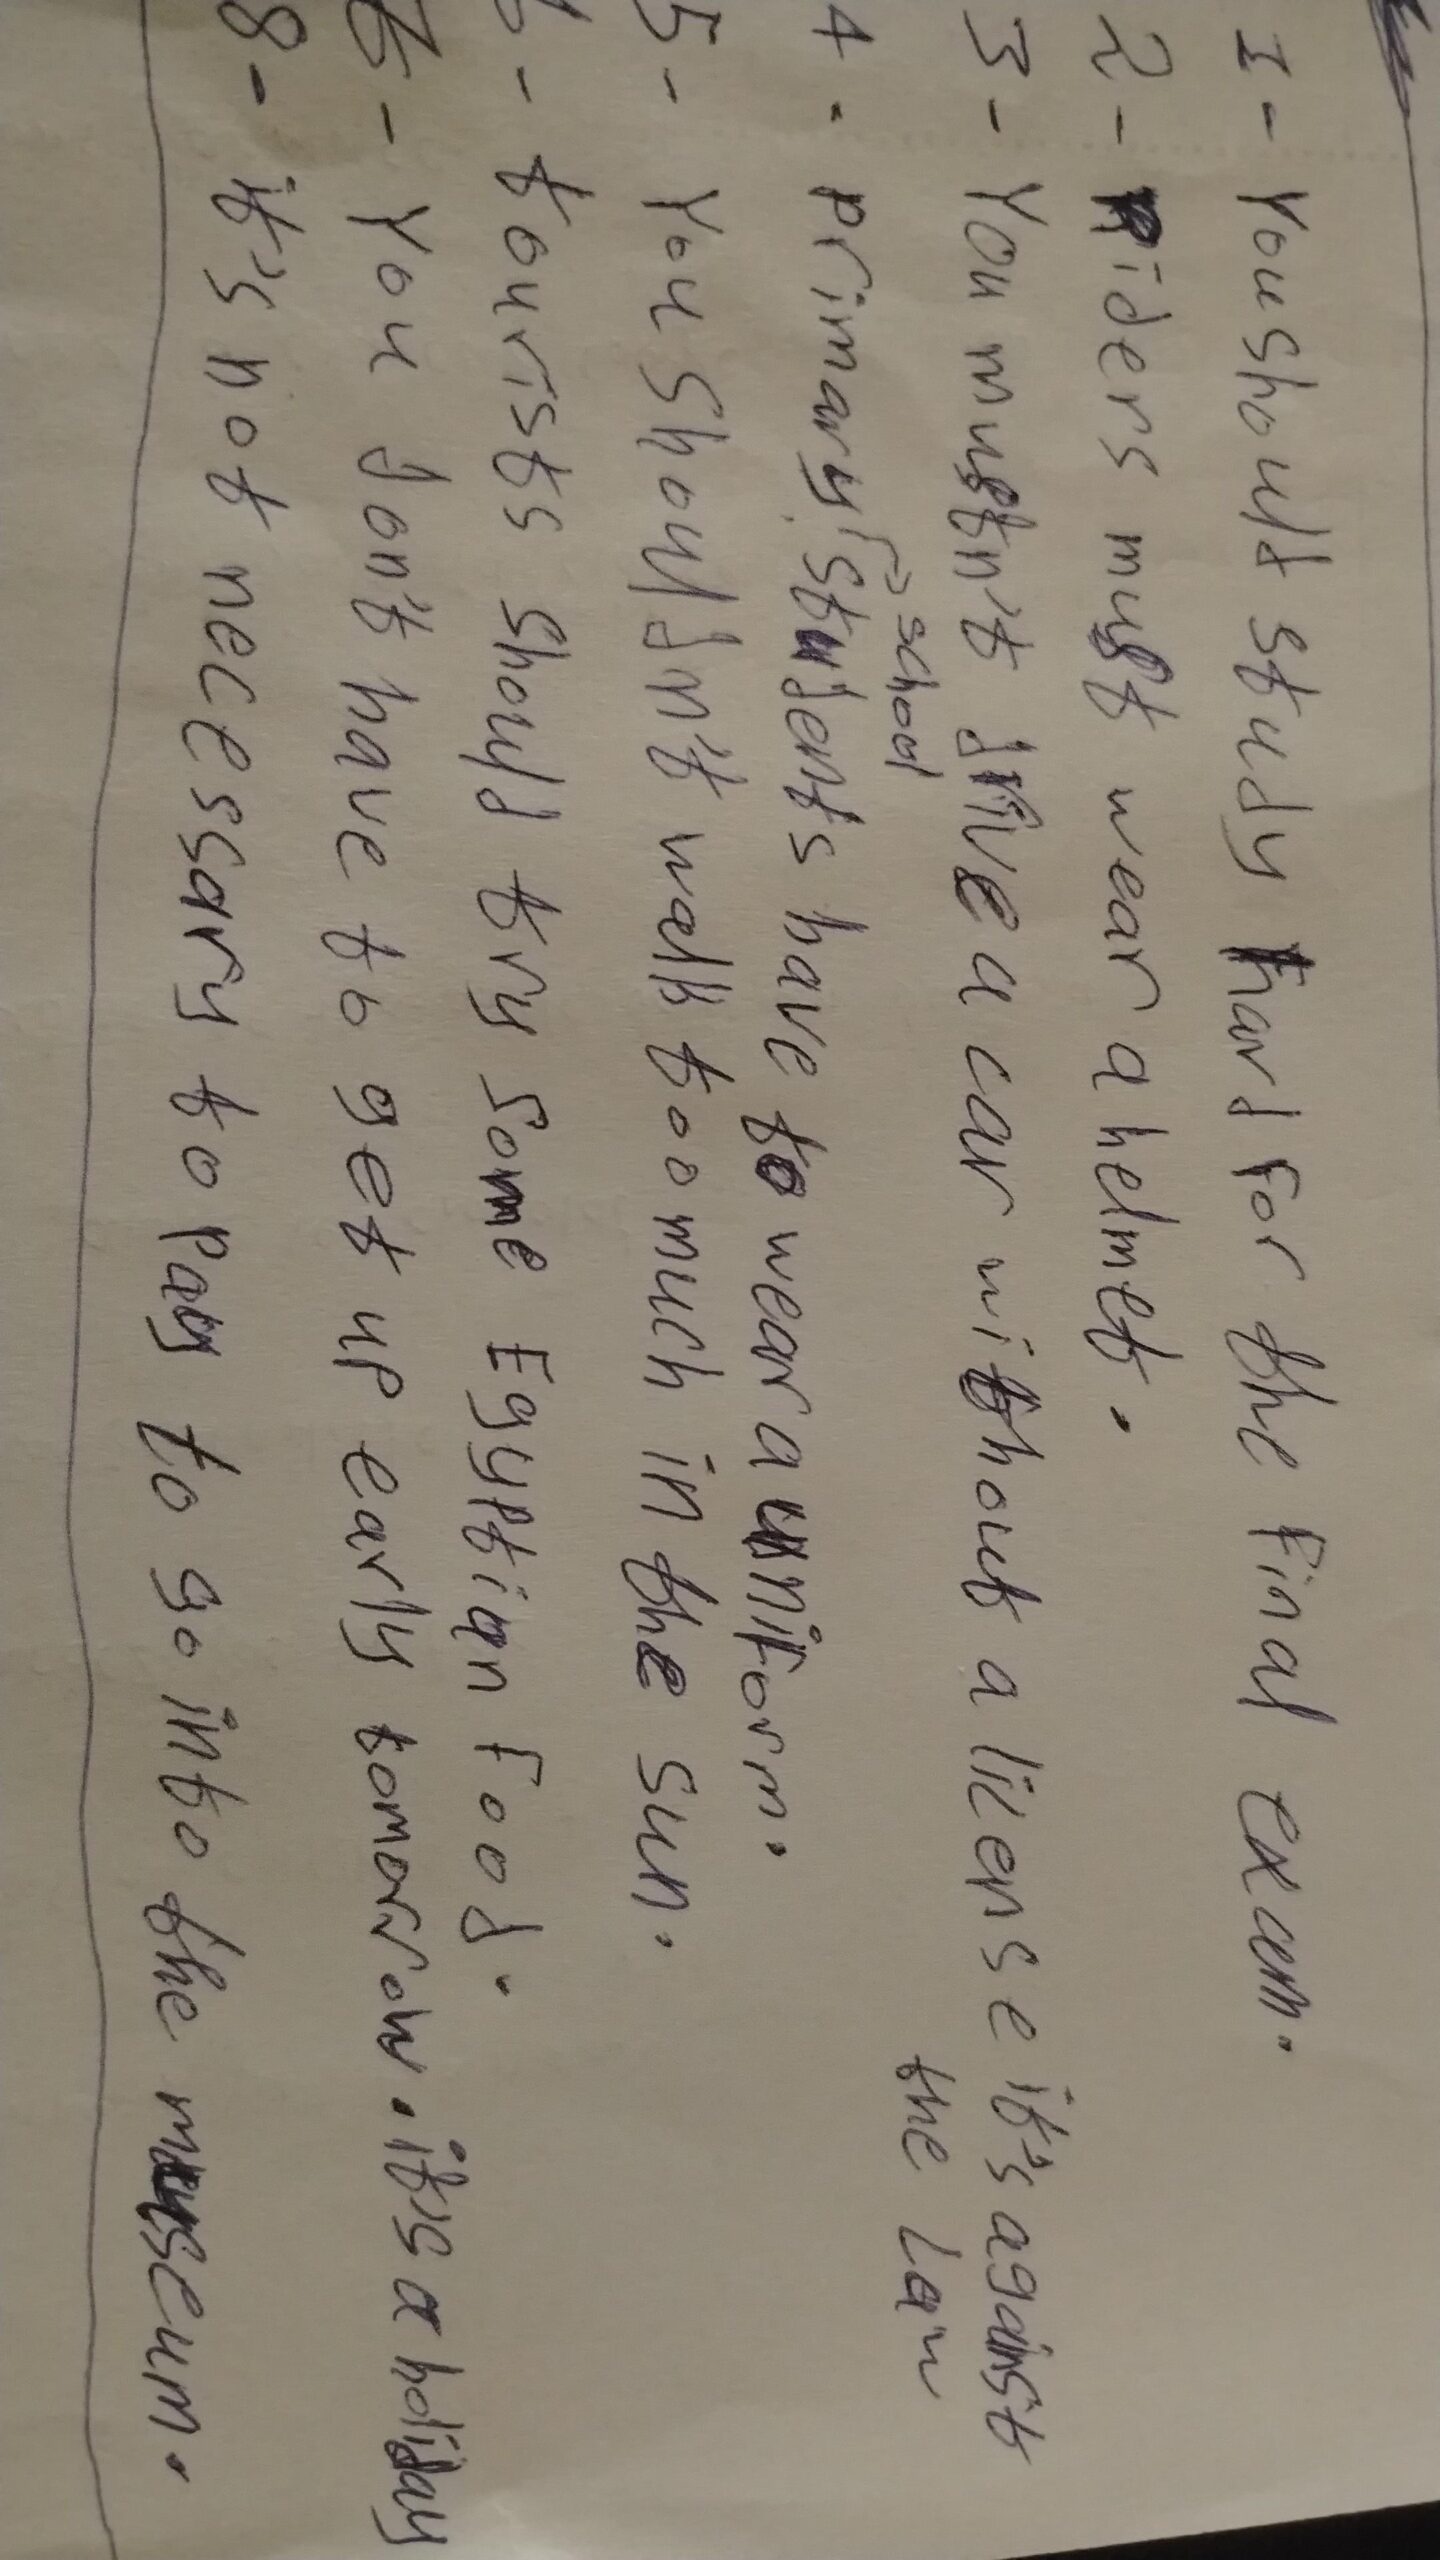 1- You should study hard for the final exam.
2- riders must wear a helmet.
3- You mustn't drive a car without a license it's against
the Law
school
4- primary students have to wear a uniform.
5- You shouldn't walk too much in the sun.
6- tourists should try some Egyptian food.
7- You don't have to get up early tomorrow. it's a holiday
8- it's not necessary to pay to go into the museum.